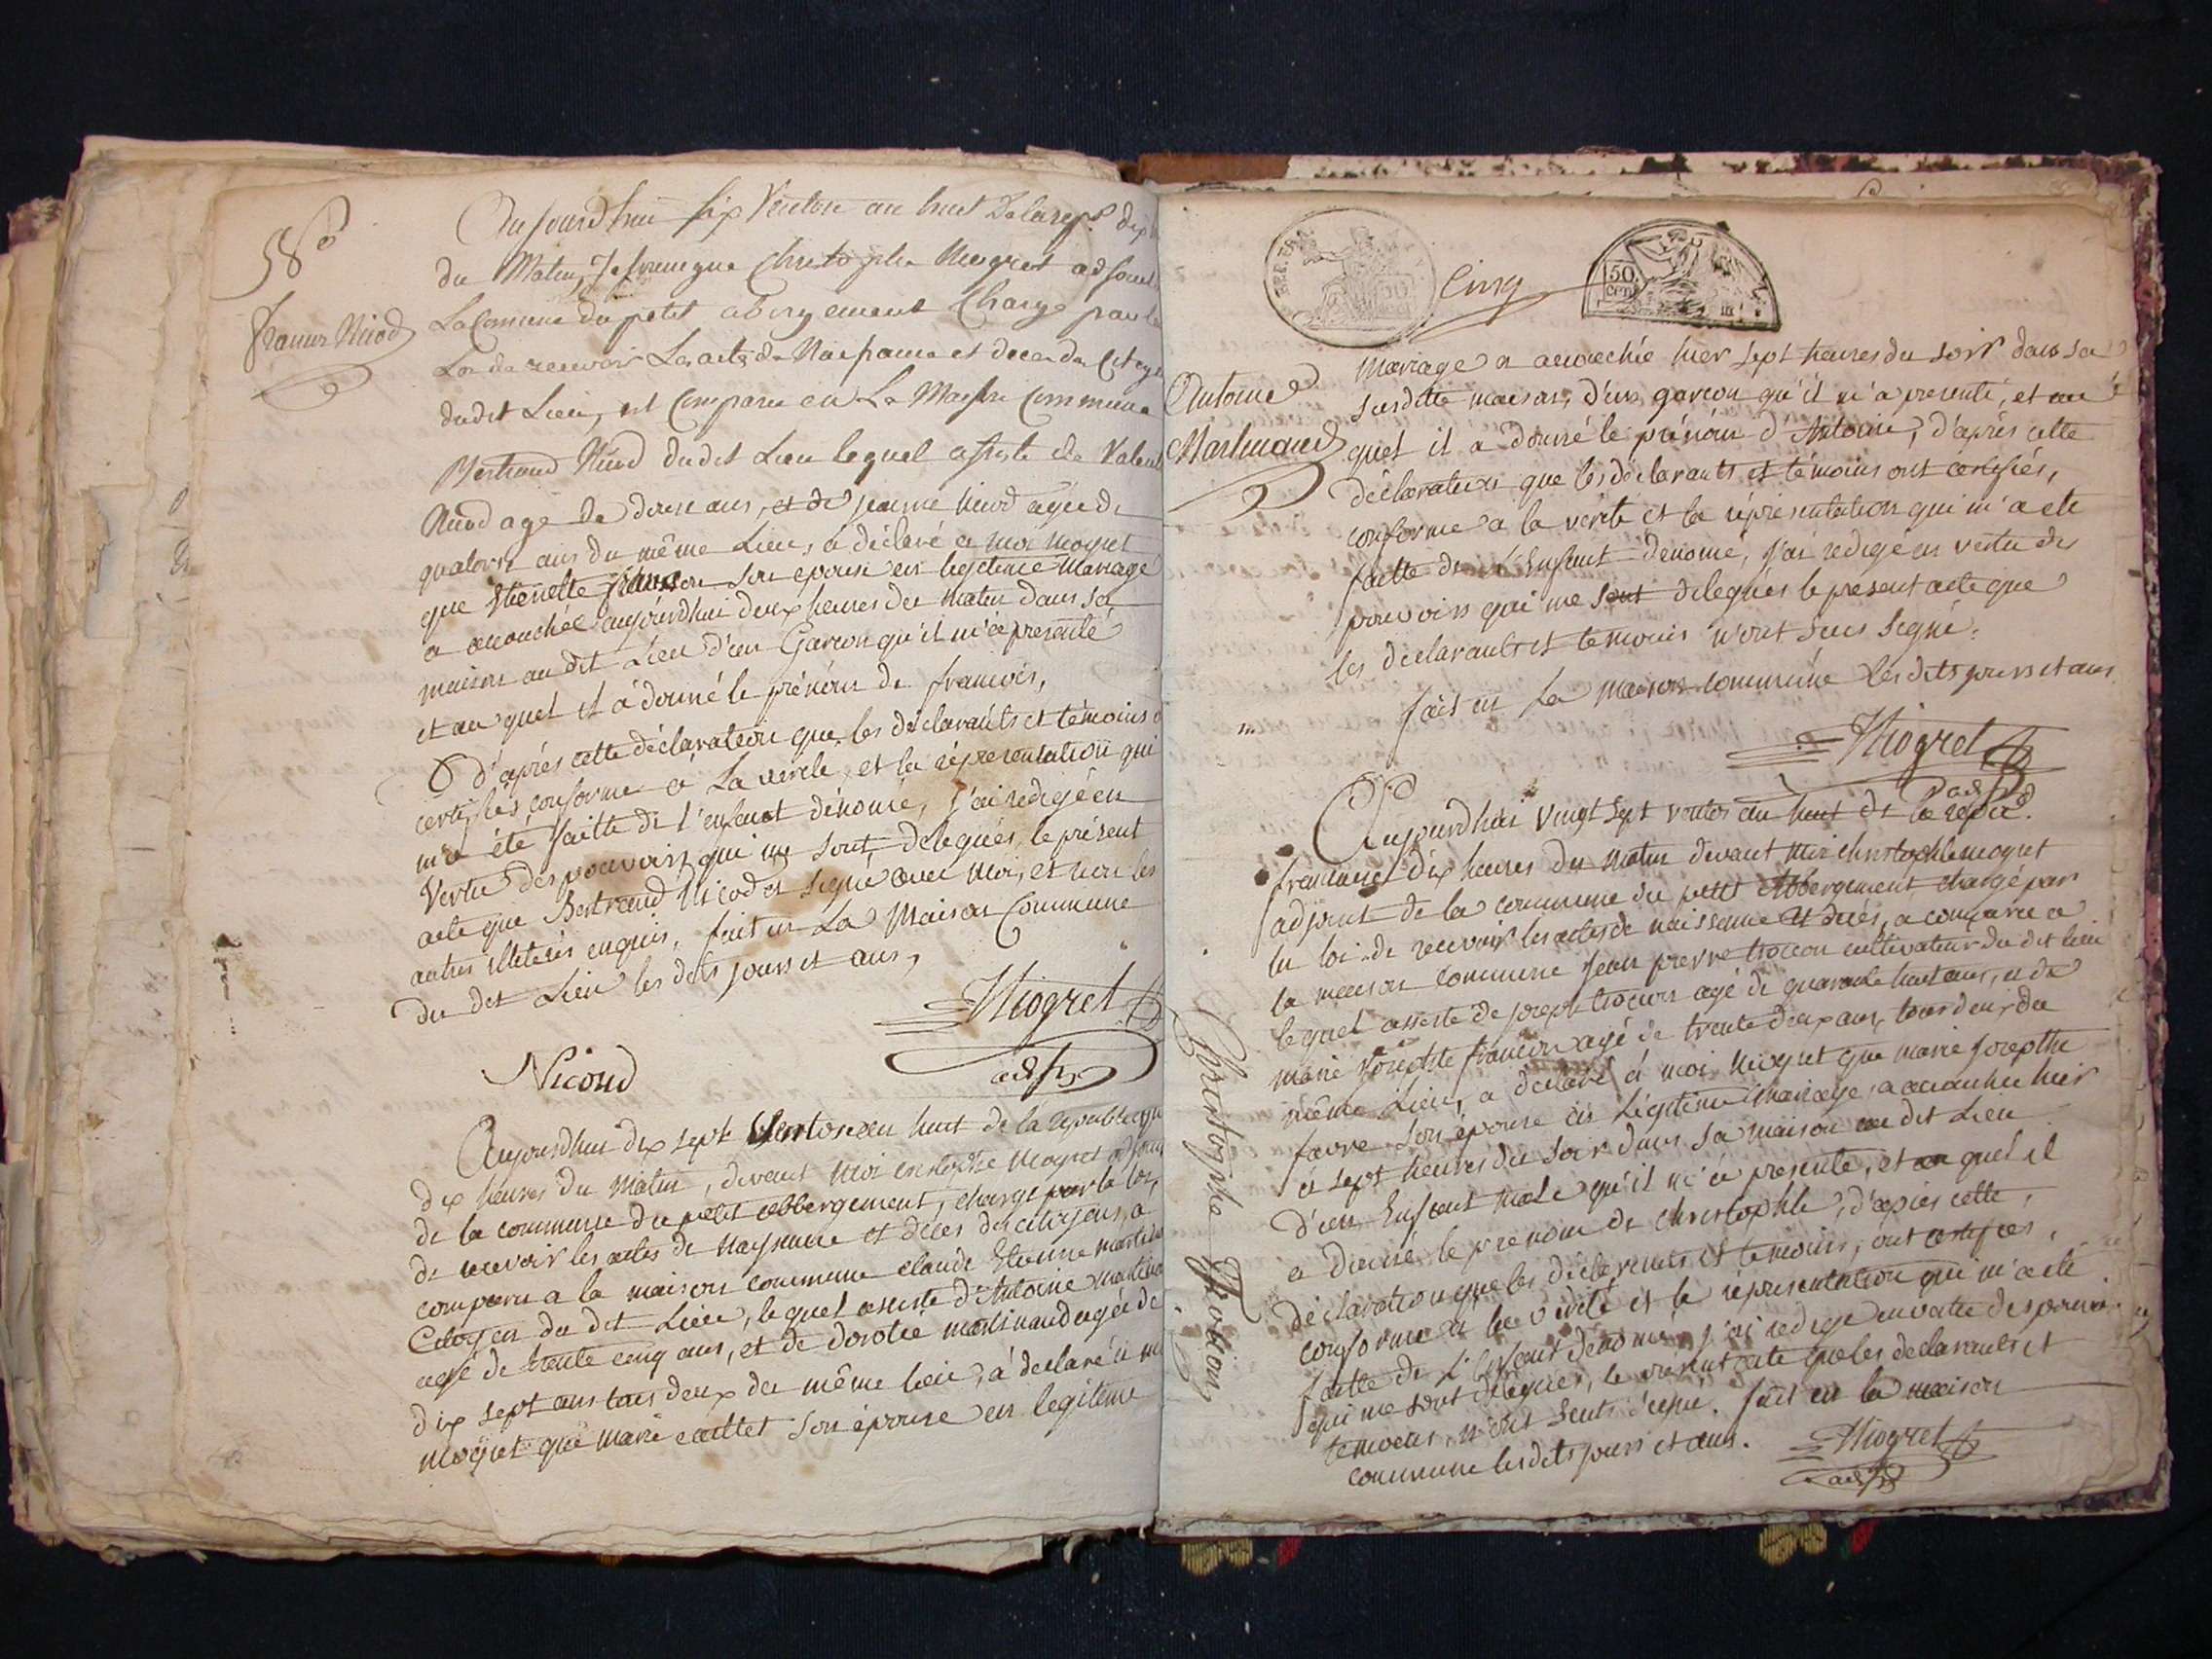 François Nicod
Aujourdhui six Ventose an huit De la rep.
du Matin, Christophe Niogret adjoint
La Comune du petit abergement Chargé par la
Loi de recevoir Les actes de Naissance et deces des Citoyen
dudit Lieu, est Comparu en La Maison Commune
Bertrand Nicod dudit Lieu lequel assisté de
Nicod agé de ans, et de jeanne Nicod agée de
quatorze ans du même Lieu, a déclaré a moi Niogret
que son epouse en legitime Mariage
a accouchée aujourdhui deux heures du matin dans sa
maison au dit Lieu d'un Garcon qu'il m'a presenté
et au quel il a donné le prénom de francois,
d'après cette déclaration que les déclarants et témoins
certifiés conforme a La verité, et la représentation qui
m'a été faitte de l'enfant dénomé, j'ai redigé en
Vertu des pouvoirs qui me sont délégués, le présent
acte que Bertrand Nicod a signé avec Moi, et non les
autres enquis, fait en La Maison Commune
du dit Lieu les dits jours et ans,
Niogret
Nicoud
adj
Aujourdhui dix sept Ventose an huit de la republique
dix heures du Matin, devant Moi cristophe Niogret adjoint
de la commune du petit abbergement, chargé par la loi,
de recevoir les actes de Naissance et déces des citoyens, a
comparu a la maison commune claude Etienne martin
Citoyen du dit Lieu, lequel assisté d'Antoine
agé de trente cinq ans, et de dorotée martinaud agée de
dix sept ans tous deux du même lieu, à declaré a moi
Niogret que marie caillet son épouse en legitime
Cinq
50
cent
Antoine
Martinaud
mariage a accouchée hier sept heures du soir dans sa
susditte maison, d'un garcon qu'il m'a presenté, et au
quel il a donné le prénom d'Antoine, d'après cette
déclaration que les déclarants et témoins ont certifiés,
conforme a la verité et la réprésentation qui m'a ete
faitte de L'Enfant dénomé, j'ai redigé en vertu des
pouvoirs qui me sont délegués le présent acte que
les déclarants et temoins n'ont seus signé.
fait en La maison commune les dits jours et ans
Niogret
adj
Aujourdhui vingt sept ventos an huit de la repub.
francaise dix heures du matin devant Moi christophle niogret
adjoint de la commune du petit Abbergement chargé par
la loi de recevoir les actes de naissance et décés, a comparu a
la maison commune jean pierre trocon cultivateur du dit lieu
lequel assisté de joseph trocon agé de quarante huit ans, et de
marie Josephte francon agé de trente deux ans, tous deux du
même Lieu, a déclaré à moi Niogret que marie josepthe
favre son épouse en Légitime Mariage, a accouchée hier
à sept heures du soir dans sa maison au dit Lieu
d'un Enfant male qu'il m'a presenté, et au quel il
a donné le prenom de christophle, d'apies cette
déclaration que les déclarants et temoins, ont certifies,
conforme a la vérité et la réprésentation qui m'a eté
faitte de L'Enfant dénomé, j'ai redigé en vertu des pouvoirs
qui me sont délegués, le présent acte que les déclarants et
temoins n'ont seuts signé. fait en la maison
commune les dits jours et ans.
Niogret
adj
Christophe Trocon